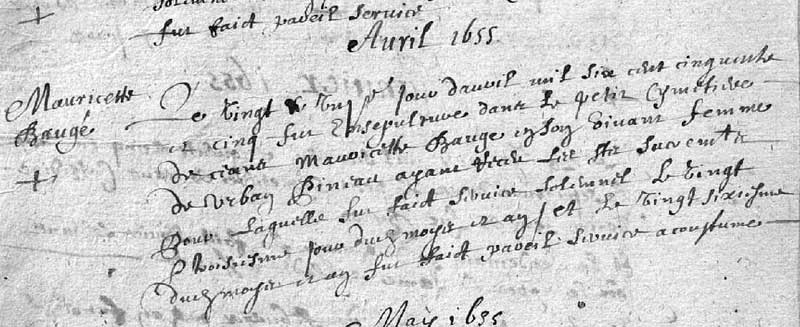 fut faict pareil service
Avril 1655
Mauricette
Baugé
Le vingt & un jour d'avril mil six cent cinquante
et cinq fut ensepulturée dans le petit cymetiere
de ceans Mauricette Baugé en son vivant femme
de Urban Pineau ayant receu les sts sacremts
Pour laquelle fut faict service solemnel le vingt
troisiesme jour dudz moys et an et le vingt sixiesme
dudz moys et an fut faict pareil service acoustumé
Mais 1655